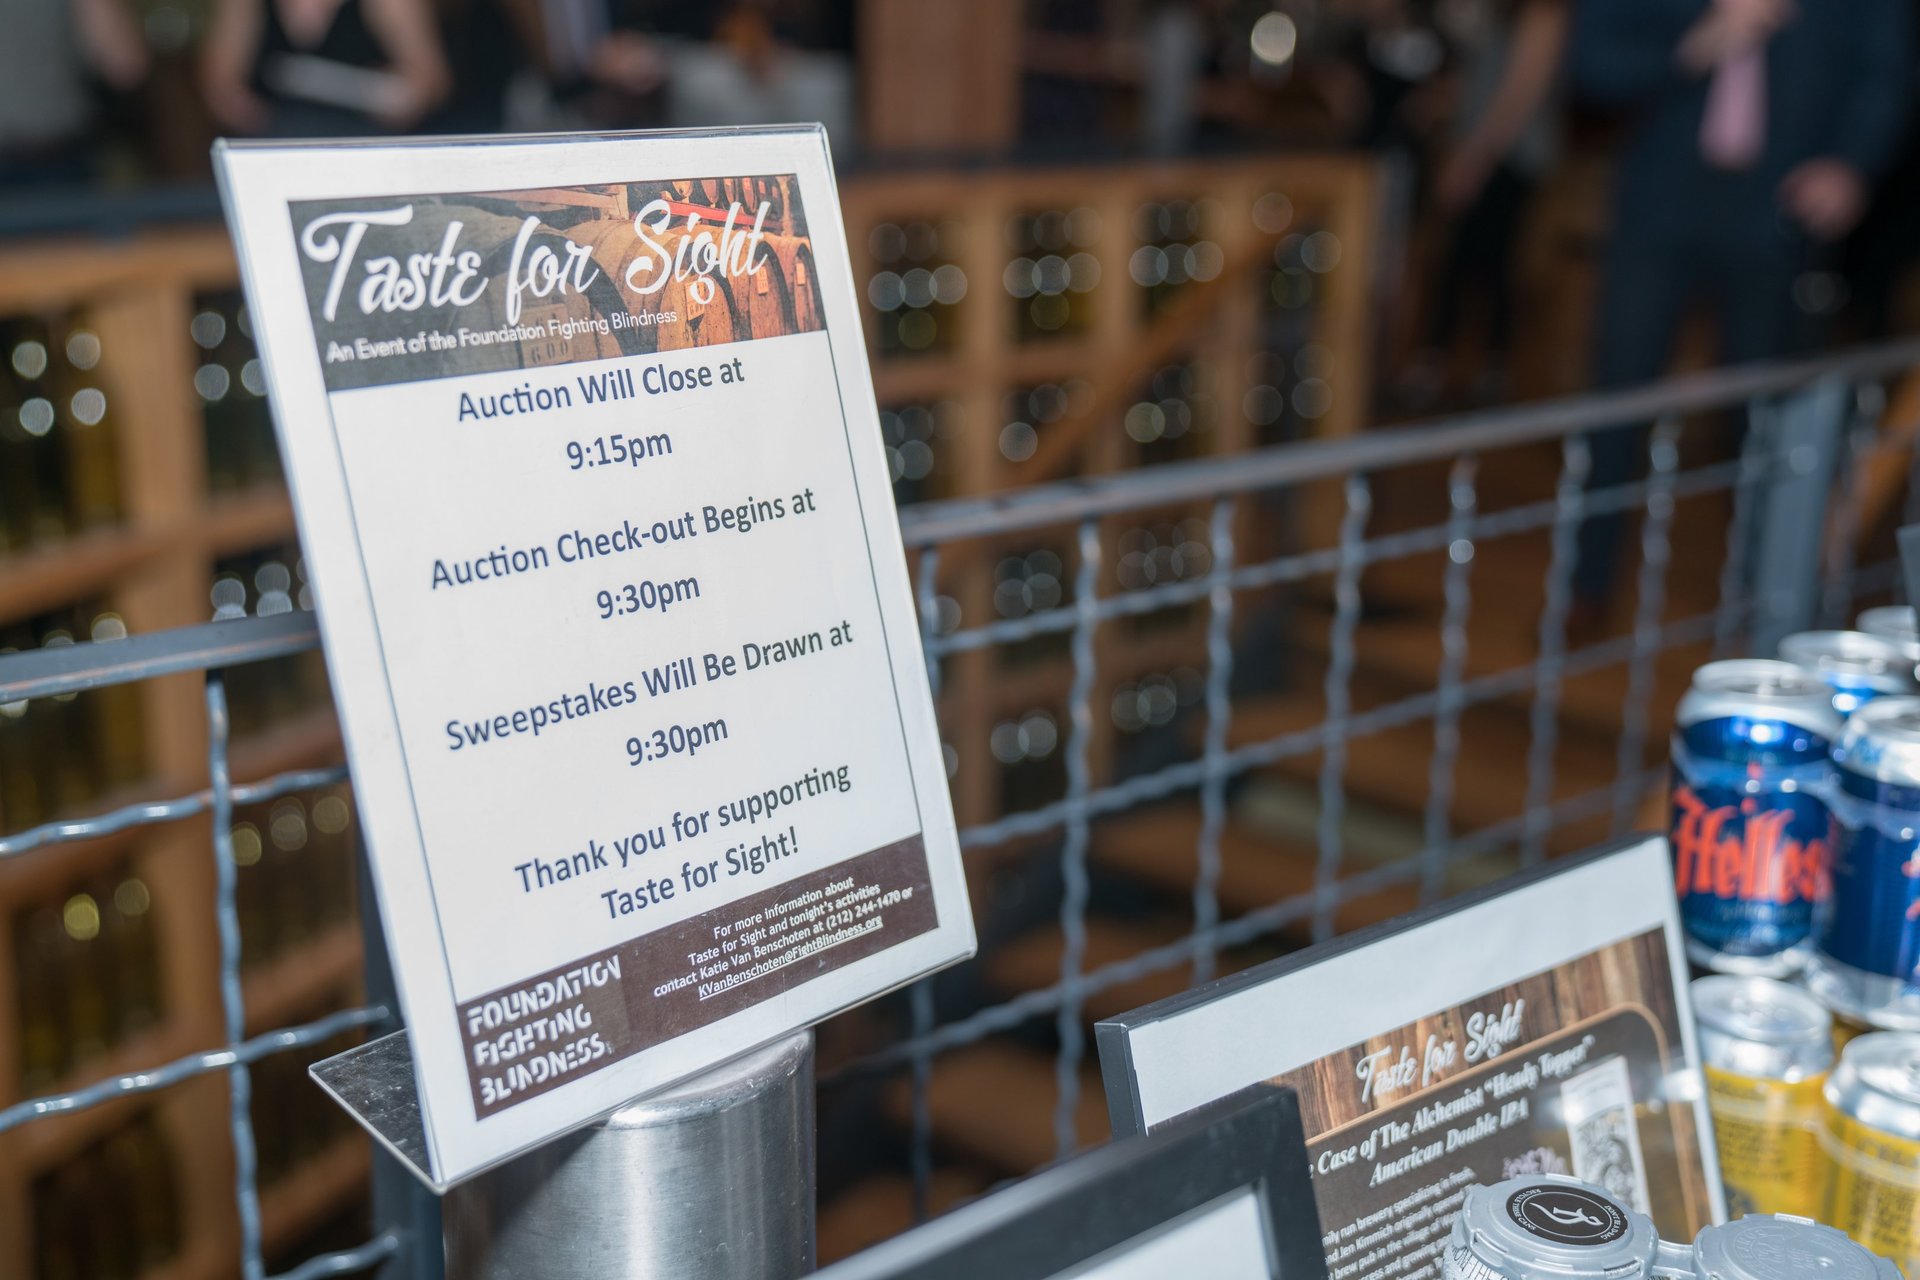 Taste for Sight
An Event of the Foundation Fighting Blindness
Auction Will Close at
9:15pm
Auction Check-out Begins at
9:30pm
Sweepstakes Will Be Drawn at
9:30pm
Thank you for supporting
Taste for Sight!
For more information about
Taste for Sight and tonight's activities
contact Katie Van Benschoten at (212) 244-1470 or
KVanBenschoten@FightBlindness.org
FOUNDATION
FIGHTING
BLINDNESS
Taste for Sight
Case of The Alchemist "Heady Topper"
American Double IPA
run brewery specializing in fresh
Jen Kimmich originally opened
brew pub in the village of
and growing
Helles